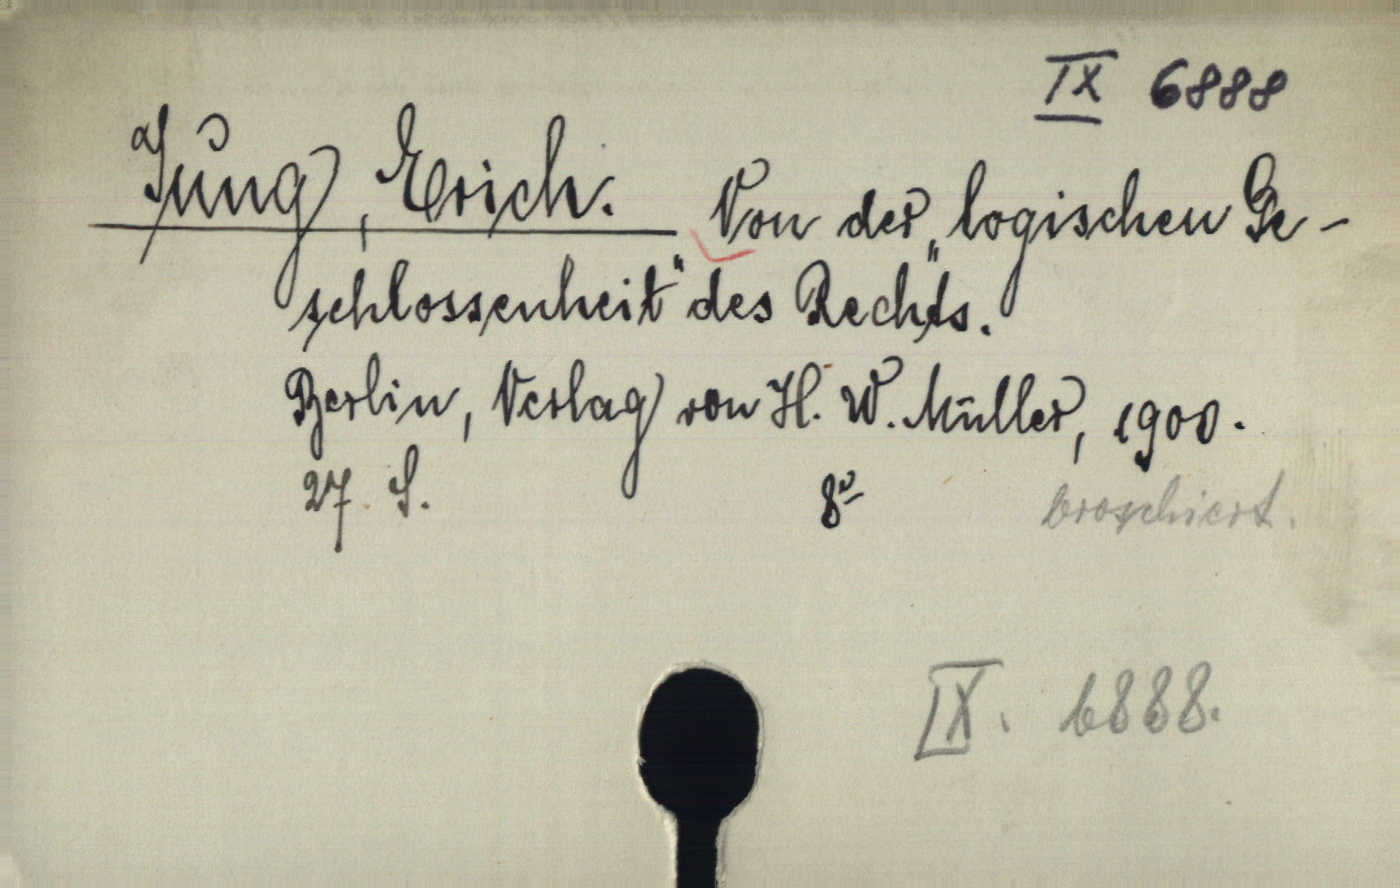 IX 6888
Jung, Erich. Von der „logischen Ge-
schlossenheit“ des Rechts.
Berlin, Verlag von H. W. Müller, 1900.
27 S. 8° broschiert.
IX. 6888.